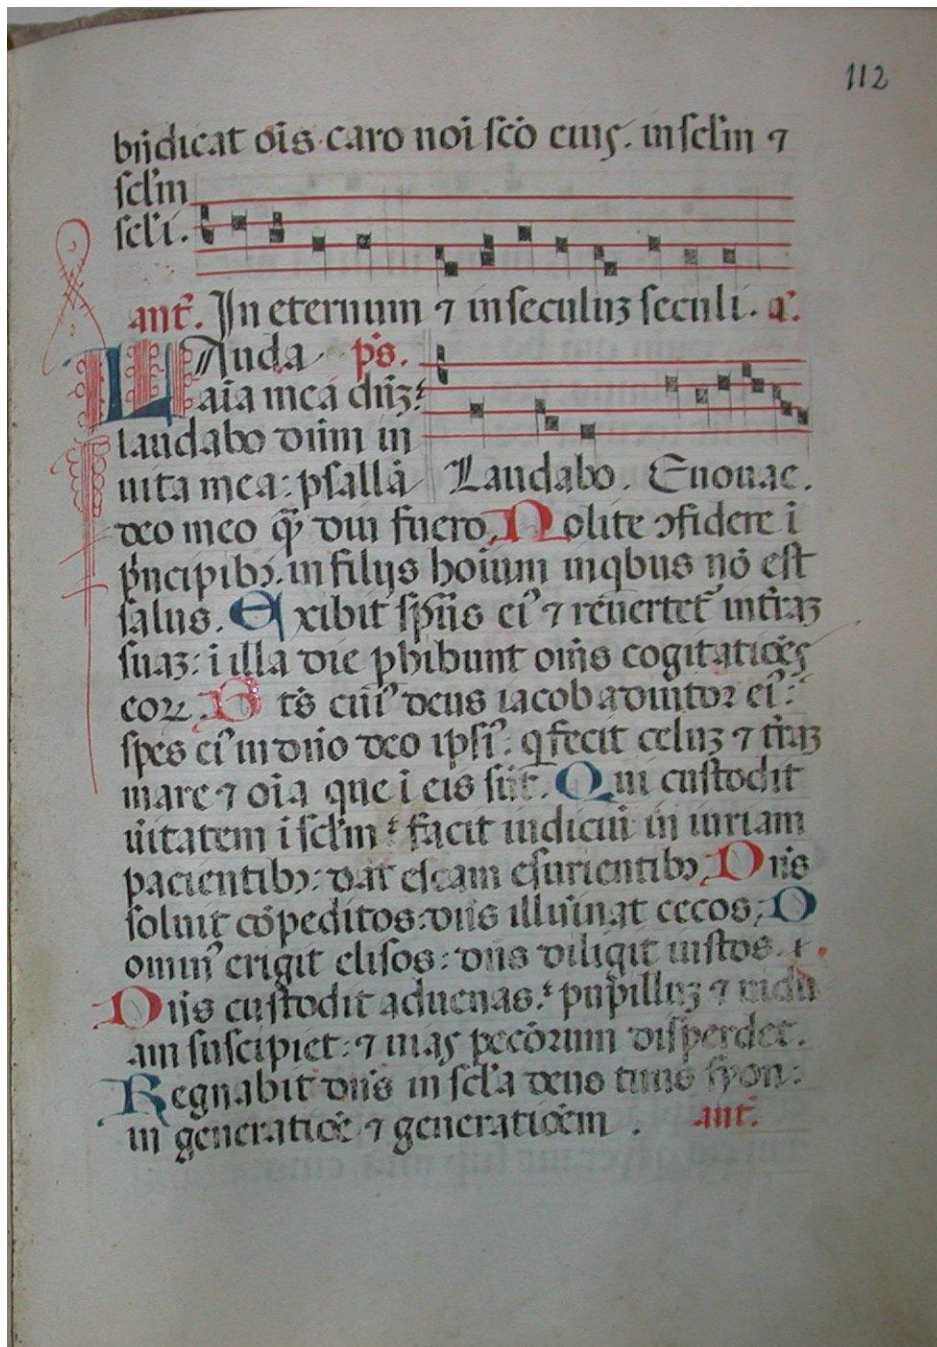 112
bñdicat oĩs caro noĩ scõ eius. in sclm ⁊
sclm
scli.
anť. In eternum ⁊ in seculuꝫ seculi. a.
LAuda ps.
aĩa mea dñꝫ:
laudabo dñm in
uita mea: psallã Laudabo. Euouae.
deo meo q̃ diu fuero. Nolite ↄfidere ĩ
p̃ncipibꝫ. in filijs hoĩum in qbus nõ est
salus. Exibit spũs eiꝰ ⁊ reuertet᷑ in t̃raꝫ
suaꝫ: ĩ illa die ꝑibunt om̃s cogitatiões
eoꝝ. Bt̃s cuiꝰ deus iacob adiutor eiꝰ:
spes eiꝰ in dño deo ipsiꝰ: q fecit celuꝫ ⁊ t̃raꝫ
mare ⁊ oĩa que ĩ eis sũt. Qui custodit
ũitatem ĩ sclm: facit iudiciũ in iuriam
pacientibꝫ: dat escam esurientibꝫ. Dñs
soluit cõpeditos: dñs illuĩnat cecos. D
ominꝰ erigit elisos: dñs diligit iustos.
Dñs custodit aduenas: pupilluꝫ ⁊ uidu
am suscipiet: ⁊ uias peccõrum disperdet.
Regnabit dñs in scla deus tuus syon:
in generatiõe ⁊ generatiõem. anť.